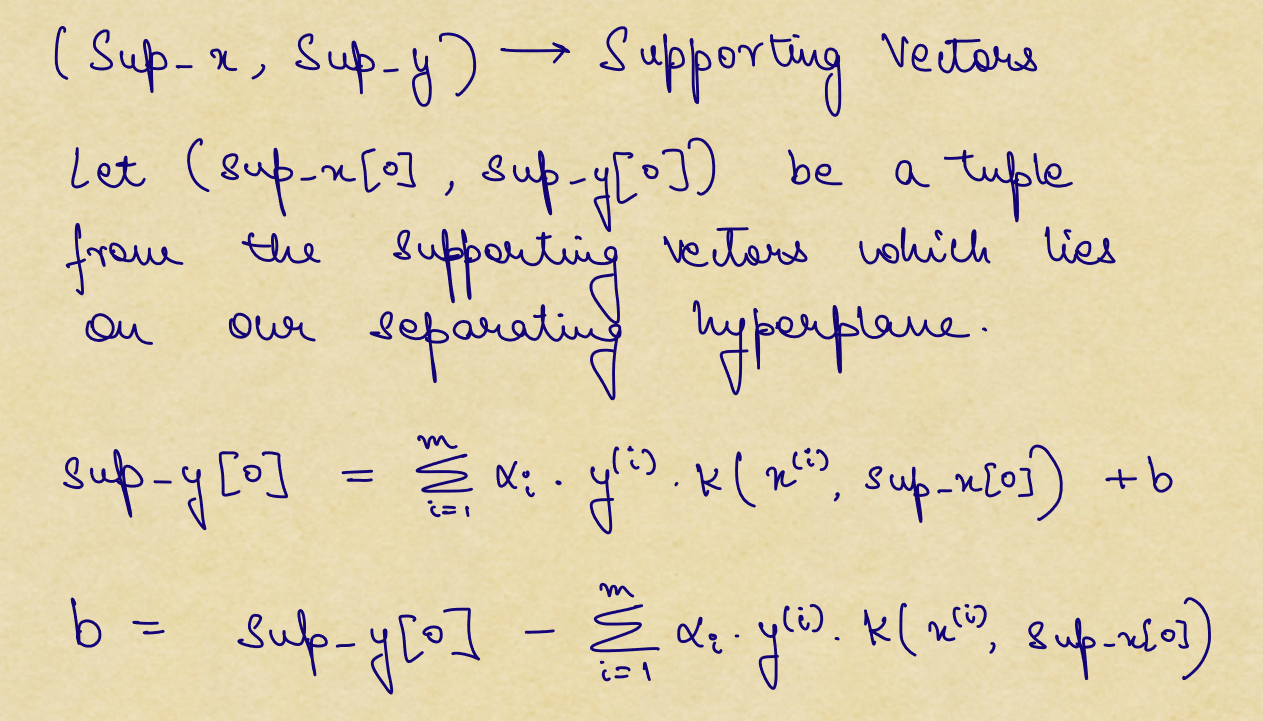 (Sup-x, Sup-y) → Supporting Vectors
Let (sup-x[0], sup-y[0]) be a tuple
from the supporting vectors which lies
on our separating hyperplane.
sup-y[0] = ∑_{i=1}^{m} αᵢ · y⁽ⁱ⁾ · K(x⁽ⁱ⁾, sup-x[0]) + b
b = sup-y[0] - ∑_{i=1}^{m} αᵢ · y⁽ⁱ⁾ · K(x⁽ⁱ⁾, sup-x[0])